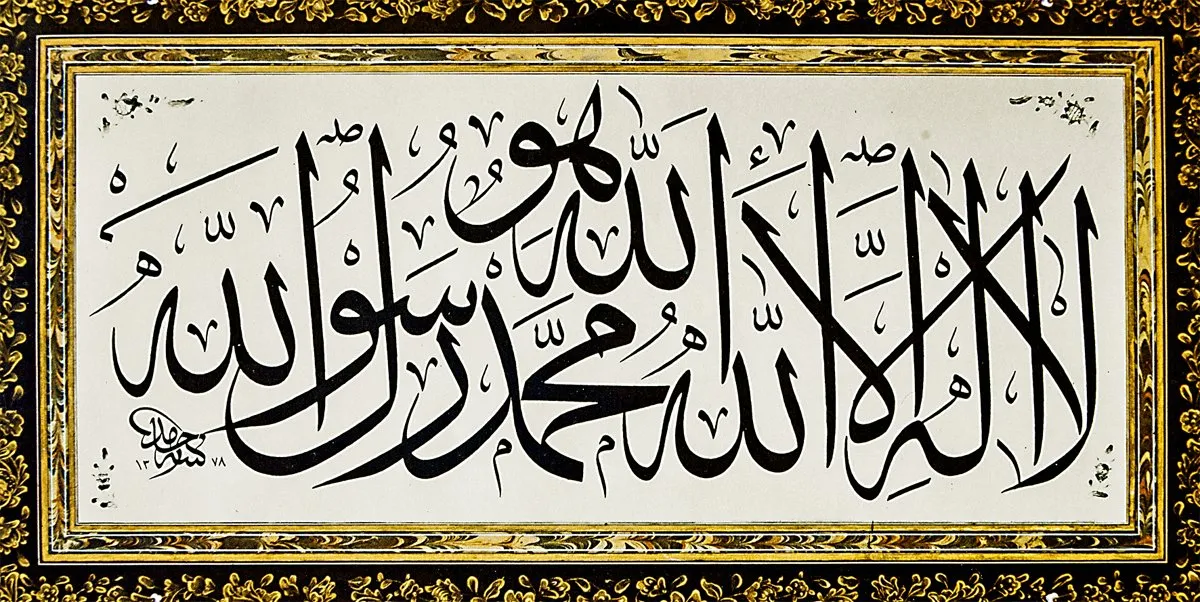 لا إله إلا الله هو
الله محمد رسول الله
كتبه حامد
١٣٧٨